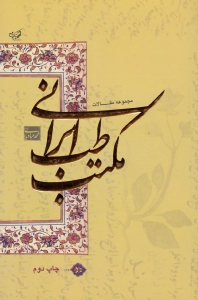 مجموعه مقالات
مکتب طب ایرانی
دو
چاپ دوم